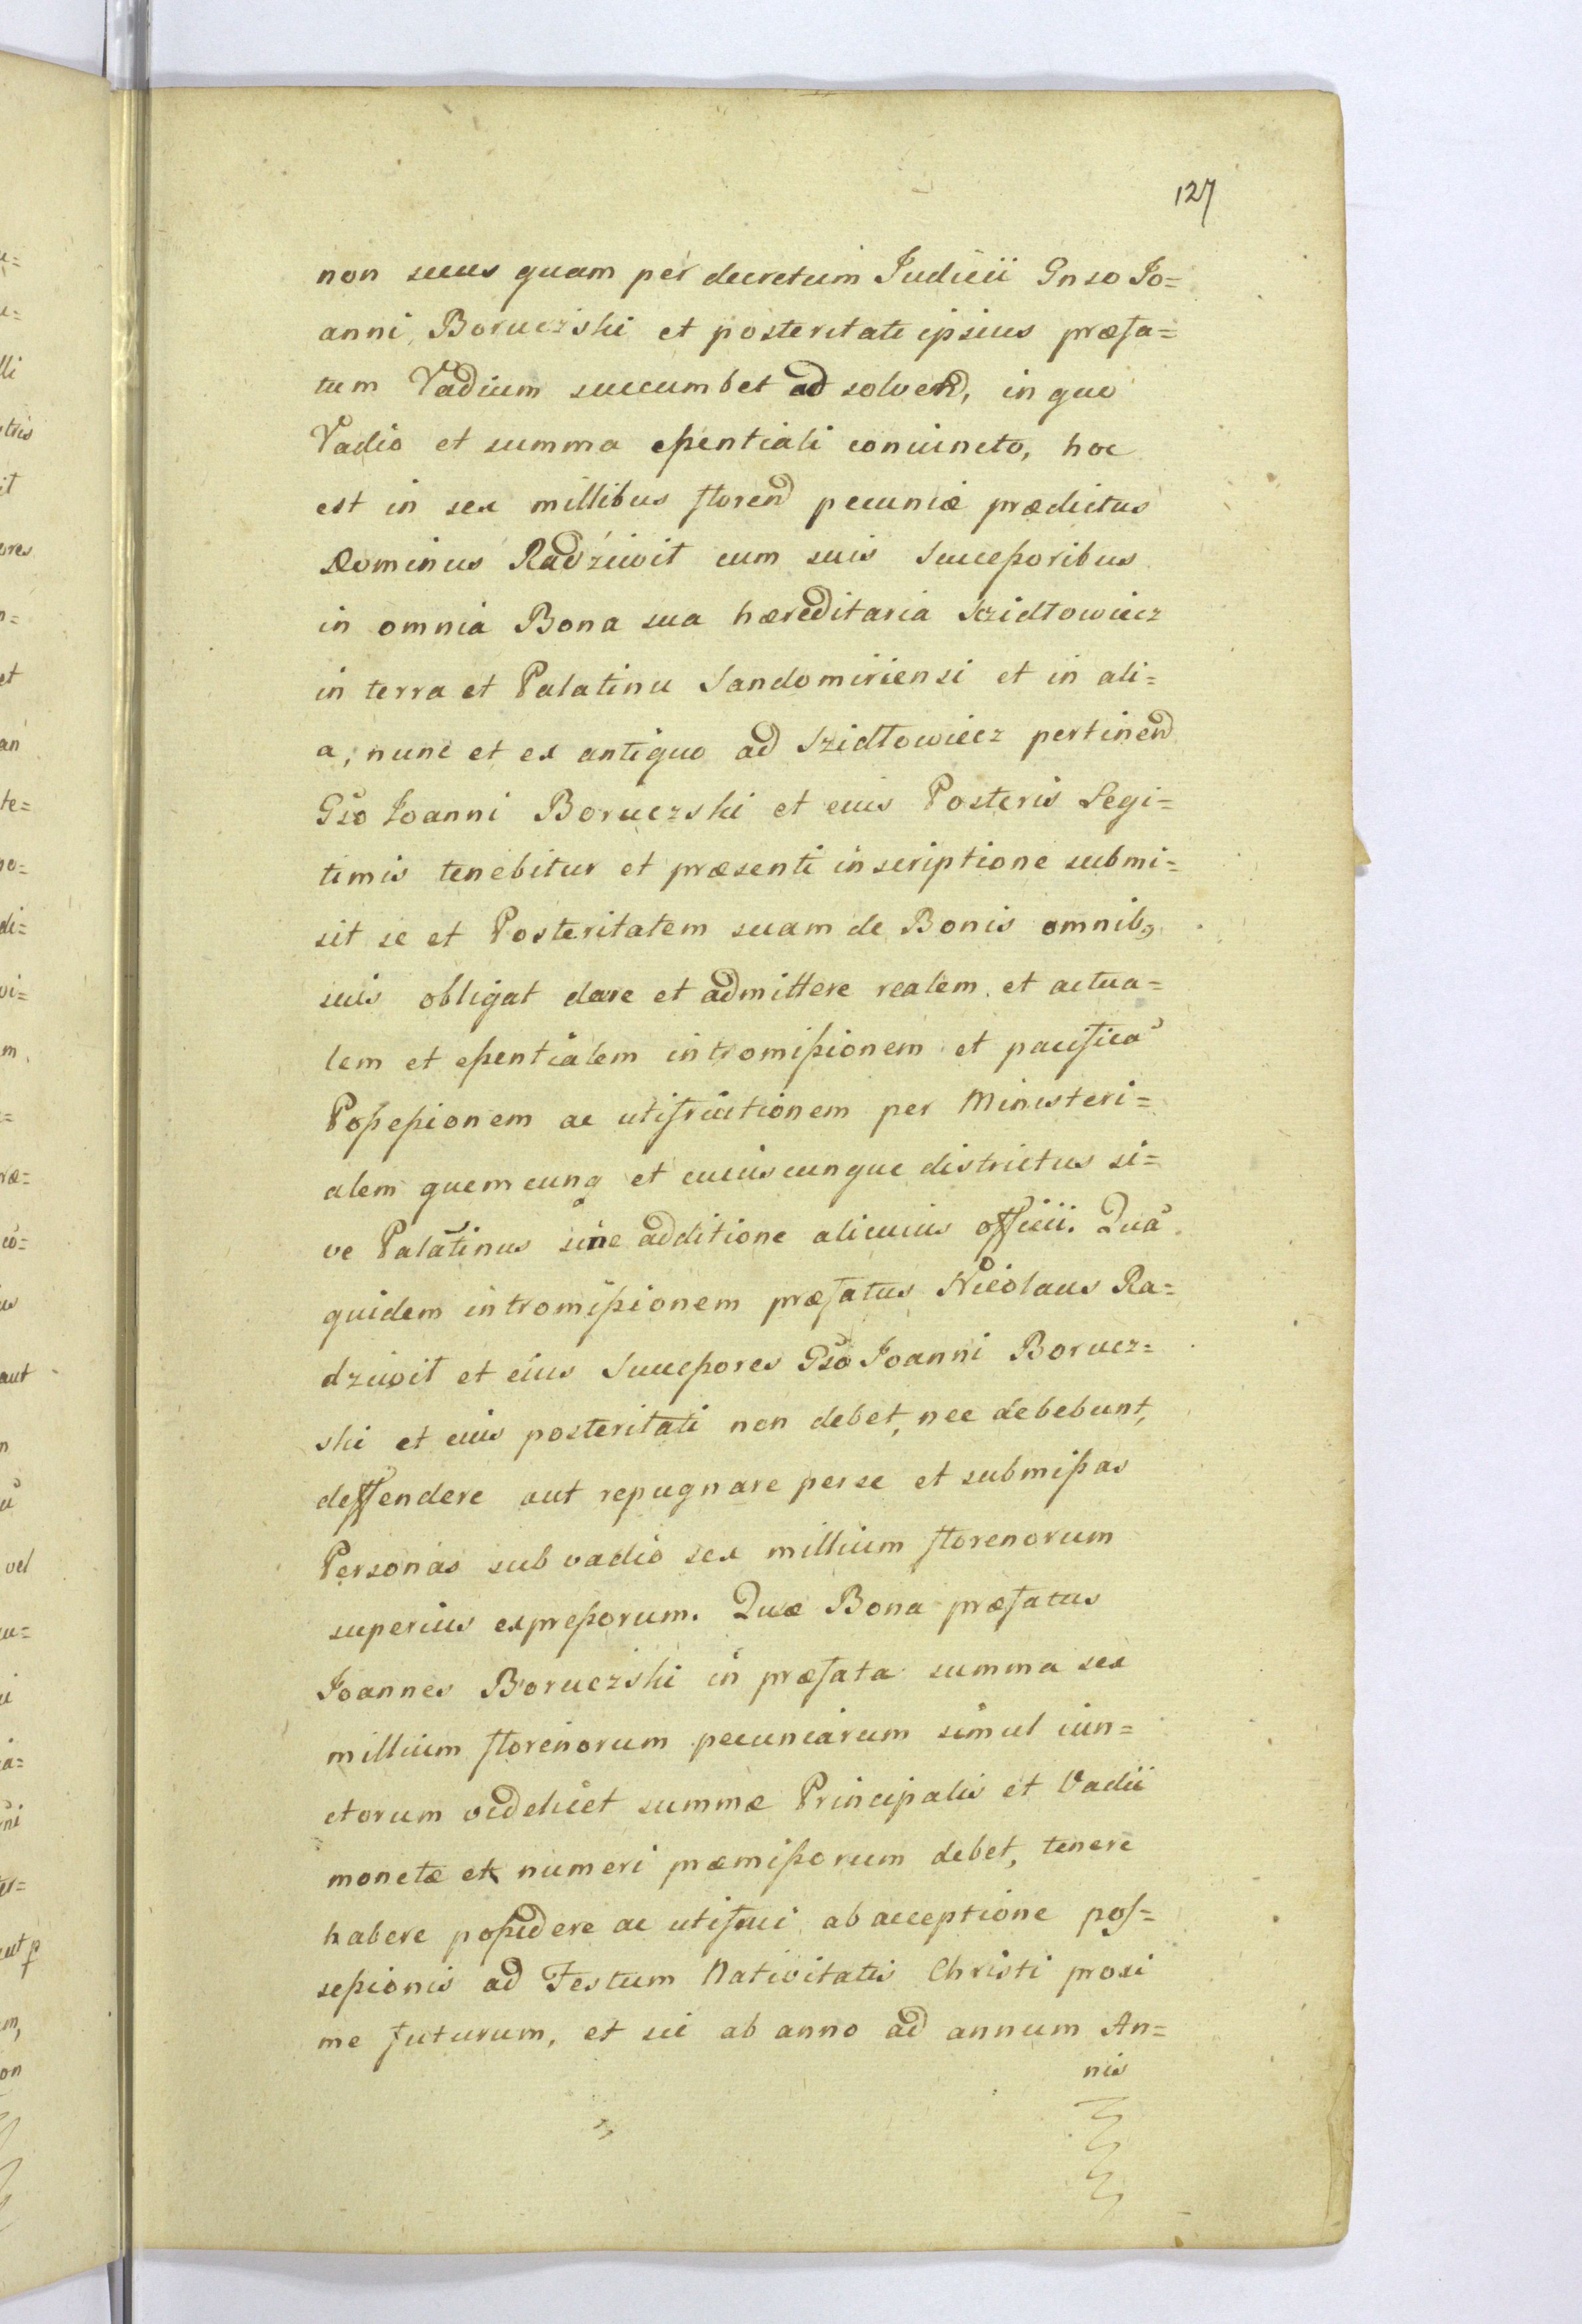 127
non secus quam per decretum Iudicii Gnso Jo=
anni Boruczski et posteritati ipsius præfa=
tum Vadium succumbet ad solvend, in quo
Vadio et summa eßentiali coniuncto, hoc
est in sex millibus florend pecuniæ prædictus
Dominus Radziwit cum suis Succeßoribus
in omnia Bona sua hæreditaria Szidtowiecz
in terra et Palatinu Sandomiriensi et in ali=
a, nunc et ex antiquo ad Szidtowiecz pertinend
Gso Joanni Boruczski et eius Posteris Legi=
timis tenebitur et præsenti inscriptione submi=
sit se et Posteritatem suam de Bonis omnib9
suis obligat dare et admittere realem et actua=
lem et eßentialem intromißionem et pacifica
Poßeßionem ac utifruitionem per Ministeri=
alem quemcunq et cuiuscunque districtus si=
ve Palatinus sine additione alicuius officii. Qua
quidem intromißionem præfatus Nicolaus Ra=
dziwit et eius Succeßores Gso Joanni Borucz=
ski et eius posteritati non debet, nec debebunt,
deffendere aut repugnare per se et submißas
Personas sub vadio sex millium florenorum
superius expreßorum. Quæ Bona præfatus
Joannes Boruczski in præfata summa sex
millium florenorum pecuniarum simul iun=
ctorum videlicet summæ Principalis et Vadii
monetæ et numeri præmißorum debet, tenere
habere poßidere ac utifrui ab acceptione pos=
seßionis ad Festum Nativitatis Christi proxi
me futurum, et sic ab anno ad annum An=
nis